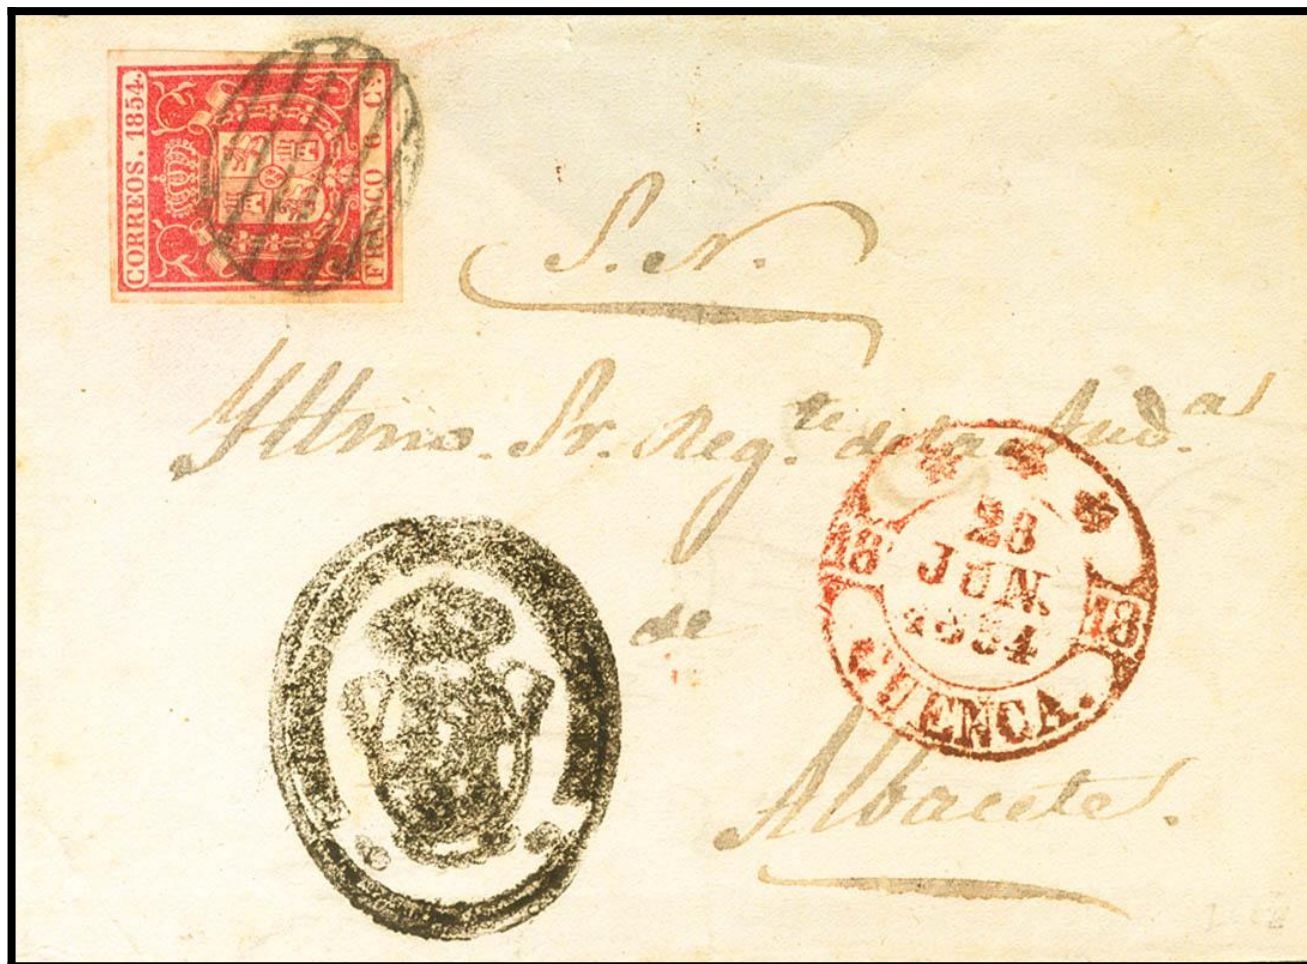 CORREOS. 1854.
FRANCO 6 Cs
S. N.
Yllmo. Sr. Reg.te de la Aud.a
de
Albacete.
18 28 18
JUN.
1854
CUENCA.